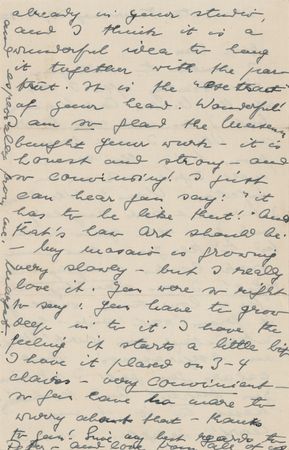 already in your studio,
and I think it is a
wonderful idea to hang
it together with the por-
trait. It is the "
of your head. Wonderful!
I am so glad the Museum
bought your work - it is
honest and strong - and
so convincing! I just
can hear you say: "it
has to be like that!" And
that's how Art should be.
- My mosaic is growing
very slowly - but I really
love it. You were so right
to say: you have to grow
deep in to it. I have the
feeling it starts a little bit,
I have it placed on 3-4
chairs - very convinient -
so you have no more to
worry about that - thanks
to you! Give my best regards to
Peter - and love from all of us
and especially from me.
Margot.